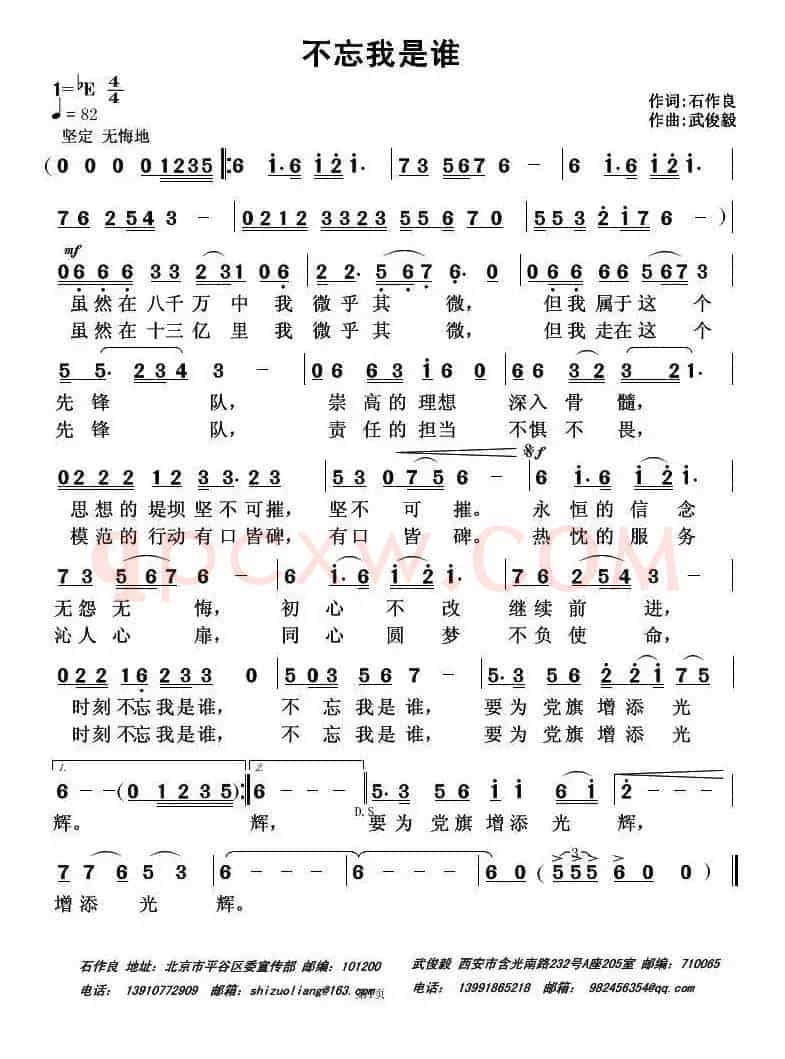 不忘我是谁
1=♭E 4/4
♩= 82
作词:石作良
作曲:武俊毅
坚定 无悔地
(0 0 0 0 1235 |: 6 i·6 i2i· | 73 567 6 - | 6 i·6 i2i· |
76 254 3 - | 0212 3323 55 6 70 | 553 2 i76 - )
mf
066 6 33 2 31 06 | 22· 5 67 6· 0 | 066 6 5 567 3 |
虽然在 八千 万 中 我 微乎 其 微, 但我 属于 这 个
虽然在 十三 亿 里 我 微乎 其 微, 但我 走在 这 个
5 5· 234 3 - | 06 63 i60 | 66 32 3 21· |
先 锋 队, 崇 高的 理想 深入 骨 髓,
先 锋 队, 责 任的 担当 不惧 不 畏,
f
022 2 12 33·23 | 53 0 75 6 - | 6 i·6 i 2i· |
思想的 堤坝 坚不可摧, 坚不 可 摧。 永 恒的 信 念
模范的 行动 有口皆碑, 有口 皆 碑。 热 忱的 服 务
73 5 67 6 - | 6 i·6 i 2i | 76 2 54 3 - |
无怨 无 悔, 初 心 不 改 继续 前 进,
沁人 心 扉, 同 心 圆 梦 不负 使 命,
022 16 233 0 | 503 56 7 - | 5·3 562 2i 75 |
时刻 不忘 我是谁, 不 忘 我是 谁, 要为 党旗 增添 光
时刻 不忘 我是谁, 不 忘 我是 谁, 要为 党旗 增添 光
1. 2.
6 - - (0 1235) :| 6 - - - 5·3 56 ii 6i | 2 - - - |
D.S.
辉。 辉, 要为 党旗 增添 光 辉,
3
77 65 53 | 6 - - - | 6 - - - | 60 ( 555 60 0 )
增添 光 辉。
石作良 地址:北京市平谷区委宣传部 邮编:101200
武俊毅 西安市含光南路232号A座205室 邮编:710065
电话: 13910772909 邮箱:shizuoliang@163.com
电话: 13991865218 邮箱: 982456354@qq.com
qpcxw.COM